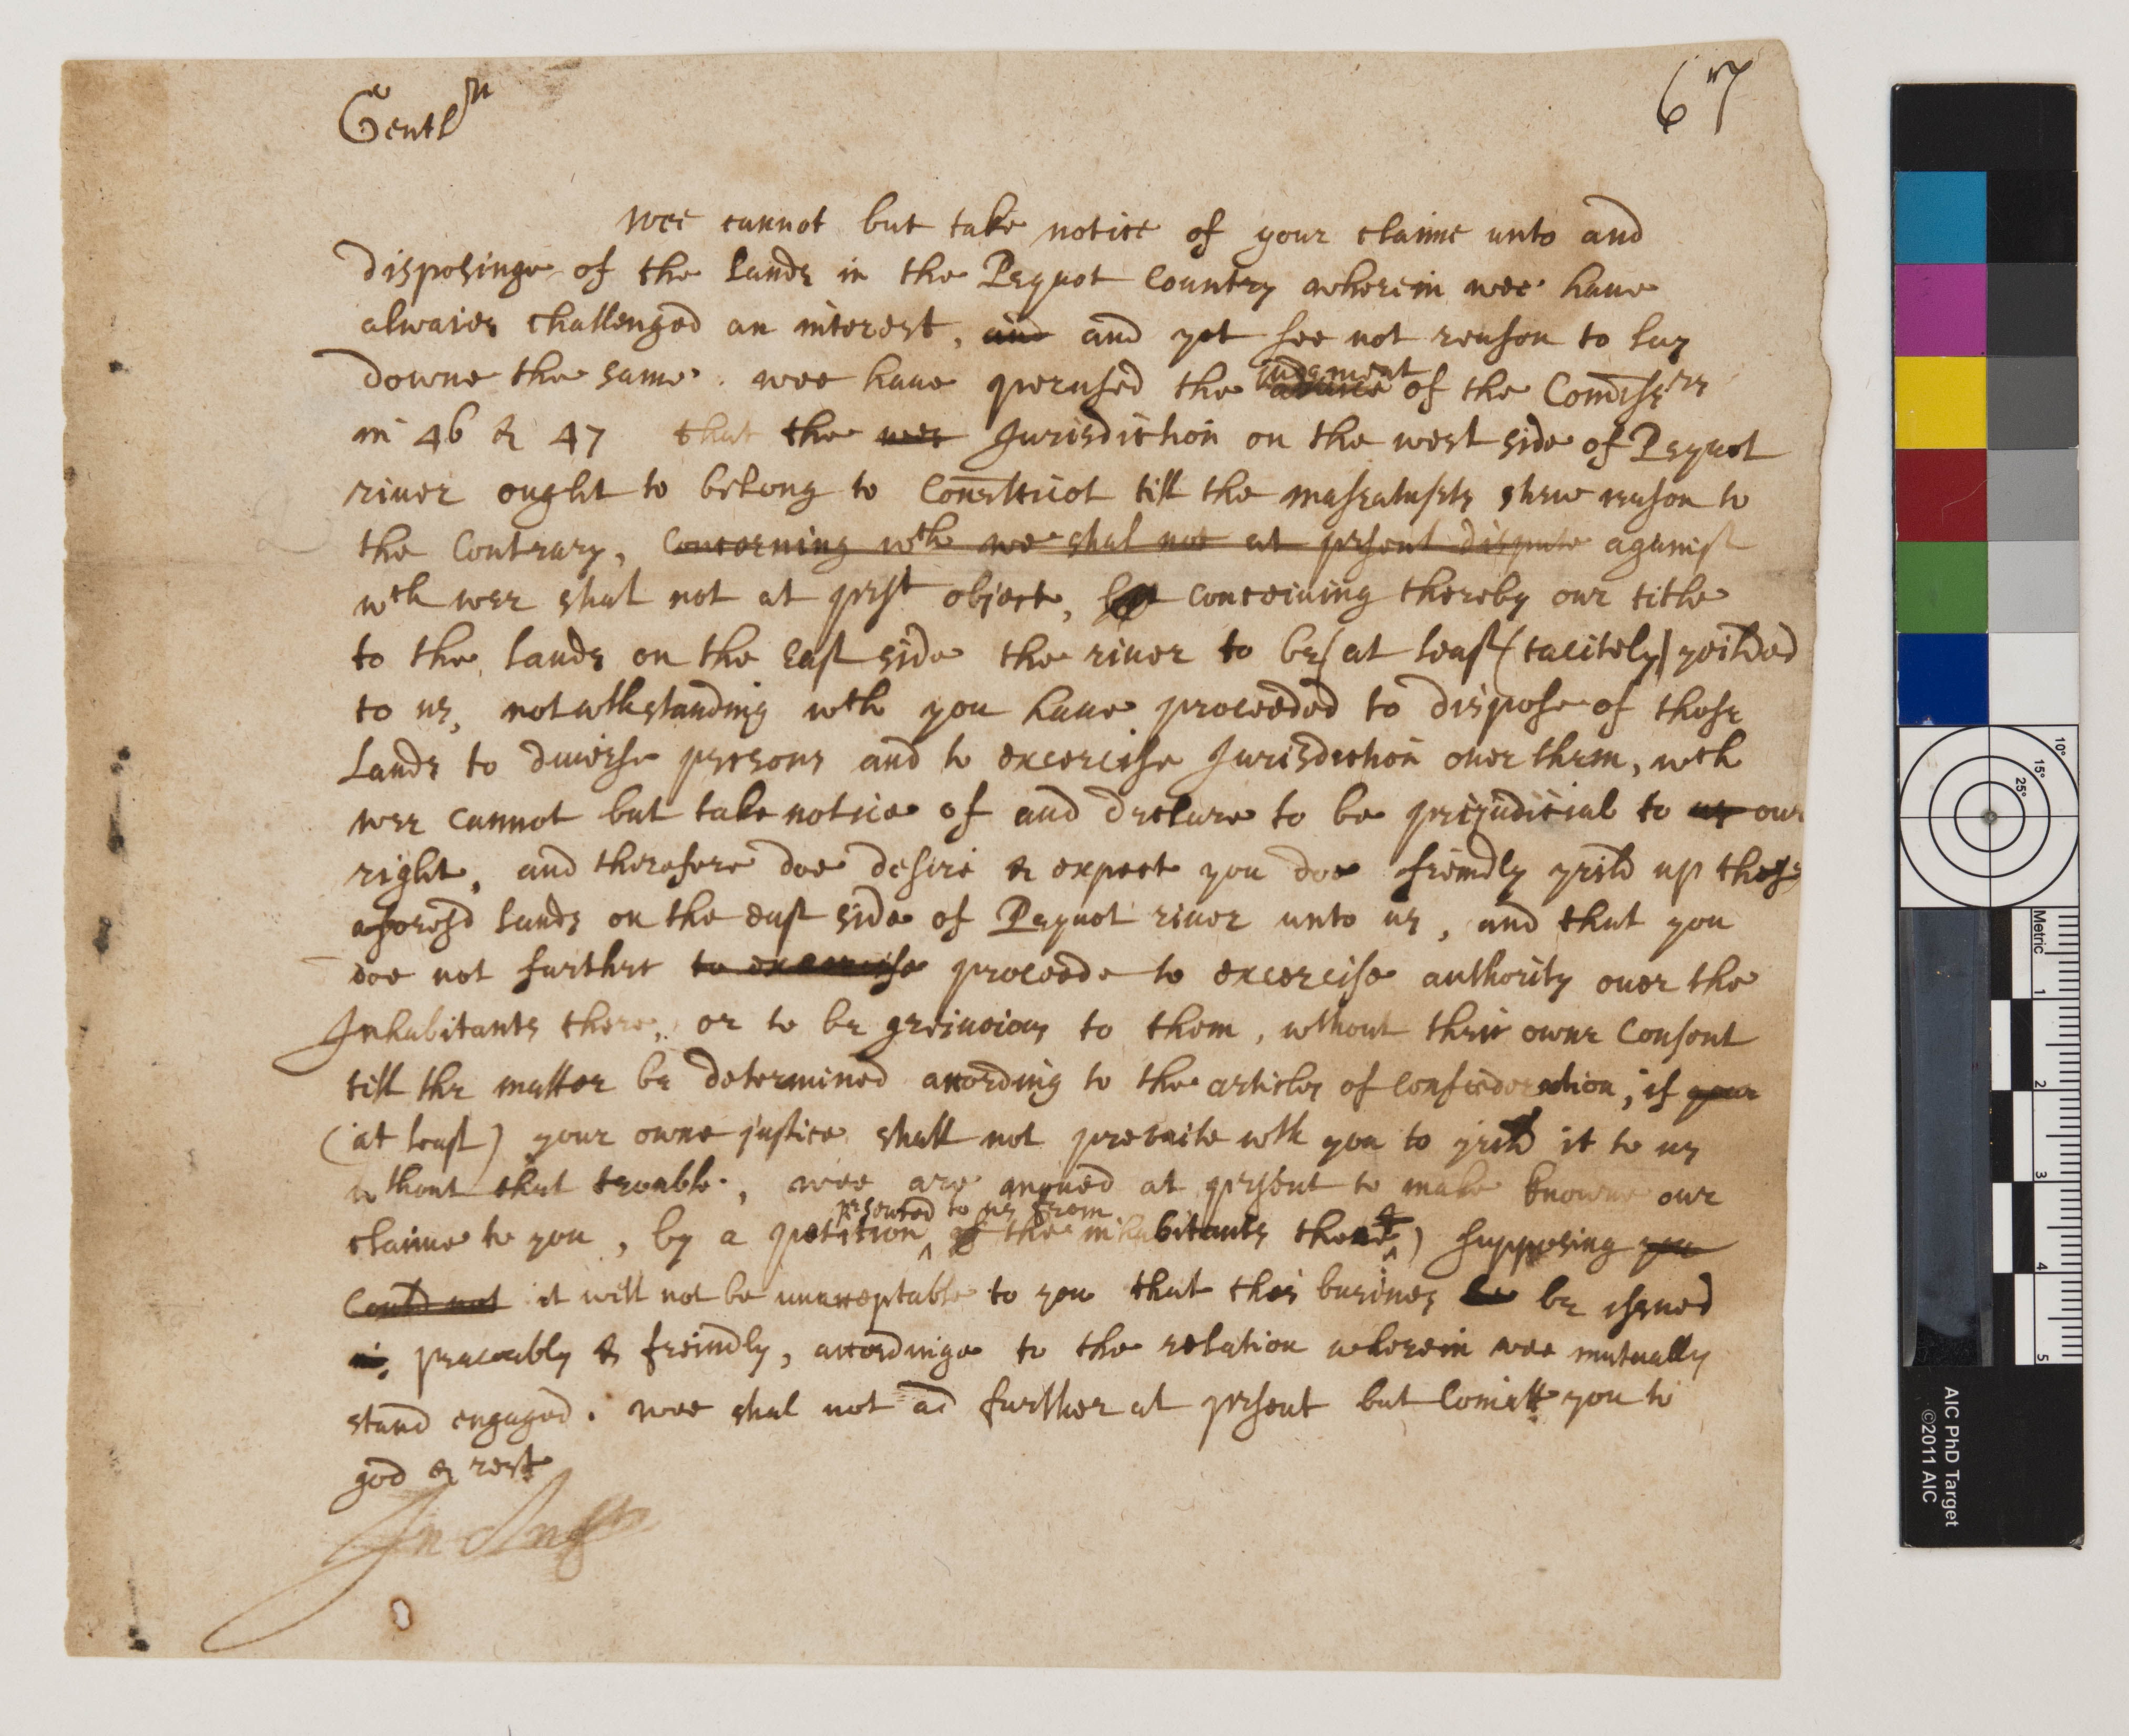 67
Gentln
wee cannot but take notice of your claime unto and
disposinge of the lands in the Pequot Country wherein wee haue
alwaies challenged an interest, and and yet see not reason to lay
downe the same. wee haue perused the judgment of the Comissrs
in 46 & 47 that the wes Jurisdiction on the west side of Pequot
riuer ought to belong to Conetticot till the massatusets shew reason to
the Contrary, Concerning wch we shal not at present dispute against
wch wee shal not at prst object, conceiuing thereby our title
to the lands on the east side the riuer to be (at least (tacitely) yeilded
to us, notwthstanding wch you haue proceeded to dispose of those
Lands to diuerse persons and to excercise Jurisdiction ouer them, wch
wee cannot but take notice of and declare to be preiudicial to us our
right, and therefore doe desire & expect you doe freindly yeild up those
aforesd lands on the east side of Pequot riuer unto us, and that you
doe not further to excercise proceede to excercise authority ouer the
Inhabitants there, or to be greiueious to them, wthout their owne Consent
till the matter be determined according to the articles of confoederation, if your
(at least) your owne justice shall not preuaile wth you to yeild it to us
wthout that trouble, wee are moued at present to make knowne our
presented to us from
claime to you, by a petition ^ of the inhabitants there) supposing you
Could not it will not be unacceptable to you that this busines be be issued
peaceably & freindly, accordinge to the relation wherein wee mutually
stand engaged. wee shal not ad further at present but Comitt you to
god & rest